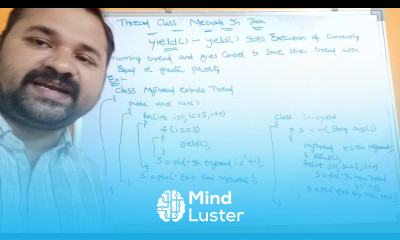 Thread Class Methods In Java
yield() :- yield() stops Execution of Currently
running thread and gives Control to Some other thread with
Equal or greater priority
Ex:-
Class MyThread extends Thread
{
public void run()
{
for(int i=1; i<=5; i++)
{
if(i==3)
{
yield();
}
S.o.pln("In Mythread i="+i);
}
S.o.pln("Exit from Mythread");
}
Class
{
p s v m(String args[])
{
for(int i=1; i<=5; i++)
Mind
Luster